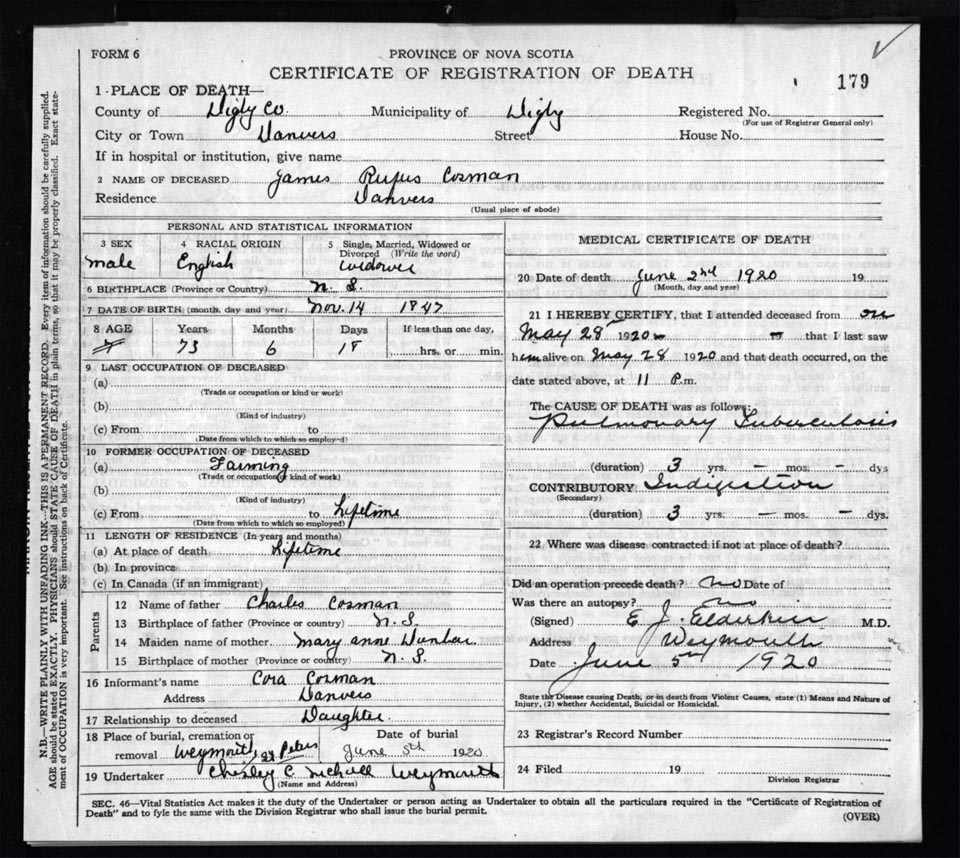 FORM 6
PROVINCE OF NOVA SCOTIA
CERTIFICATE OF REGISTRATION OF DEATH
179
1 PLACE OF DEATH—
County of Digby Co. Municipality of Digby Registered No.
(For use of Registrar General only)
City or Town Danvers Street House No.
If in hospital or institution, give name
2 NAME OF DECEASED James Rufus Cosman
Residence Danvers
(Usual place of abode)
PERSONAL AND STATISTICAL INFORMATION
3 SEX 4 RACIAL ORIGIN 5 Single, Married, Widowed or Divorced (Write the word)
male English widower
6 BIRTHPLACE (Province or Country) N. S.
7 DATE OF BIRTH (month, day and year) Nov. 14 1847
8 AGE Years Months Days If less than one day,
73 6 18 hrs. or min.
9 LAST OCCUPATION OF DECEASED
(a)
(Trade or occupation or kind or work)
(b)
(Kind of industry)
(c) From to
(Date from which to which so employed)
10 FORMER OCCUPATION OF DECEASED
(a) Farming
(Trade or occupation or kind of work)
(b)
(Kind of industry)
(c) From to Lifetime
(Date from which to which so employed)
11 LENGTH OF RESIDENCE (In years and months)
(a) At place of death Lifetime
(b) In province
(c) In Canada (if an immigrant)
Parents
12 Name of father Charles Cosman
13 Birthplace of father (Province or country) N. S.
14 Maiden name of mother Mary Anne Dunbar
15 Birthplace of mother (Province or country) N. S.
16 Informant's name Cora Cosman
Address Danvers
17 Relationship to deceased Daughter
18 Place of burial, cremation or removal Weymouth St Peters
Date of burial June 5th 1920
19 Undertaker C. Weymouth
(Name and Address)
MEDICAL CERTIFICATE OF DEATH
20 Date of death June 2nd 1920 19
(Month, day and year)
21 I HEREBY CERTIFY, that I attended deceased from on
May 28 1920 to that I last saw
him alive on May 28 1920 and that death occurred, on the
date stated above, at 11 P.m.
The CAUSE OF DEATH was as follows:
Pulmonary Tuberculosis
(duration) 3 yrs. — mos. — dys
CONTRIBUTORY Indigestion
(Secondary)
(duration) 3 yrs. — mos. — dys.
22 Where was disease contracted if not at place of death?
Did an operation precede death? no Date of
Was there an autopsy? no
(Signed) E. J. Elderkin M.D.
Address Weymouth
Date June 5th 1920
State the Disease causing Death, or in death from Violent Causes, state (1) Means and Nature of
Injury, (2) whether Accidental, Suicidal or Homicidal.
23 Registrar's Record Number
24 Filed 19
Division Registrar
SEC. 46—Vital Statistics Act makes it the duty of the Undertaker or person acting as Undertaker to obtain all the particulars required in the "Certificate of Registration of
Death" and to fyle the same with the Division Registrar who shall issue the burial permit.
(OVER)
N.B.—WRITE PLAINLY WITH UNFADING INK—THIS IS A PERMANENT RECORD. Every item of information should be carefully supplied.
AGE should be stated EXACTLY. PHYSICIANS should STATE CAUSE OF DEATH in plain terms, so that it may be properly classified. Exact state-
ment of OCCUPATION is very important. See instructions on back of Certificate.